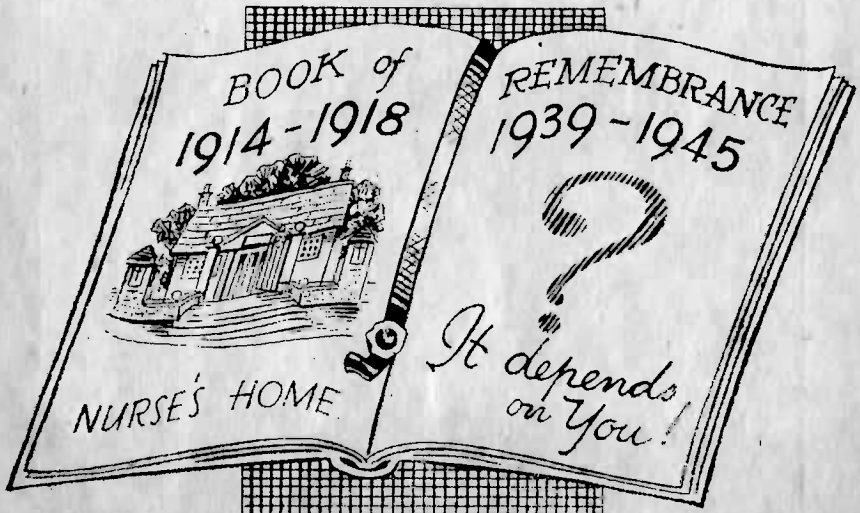 BOOK of
1914-1918
NURSE'S HOME
REMEMBRANCE
1939-1945
?
It depends
on You!